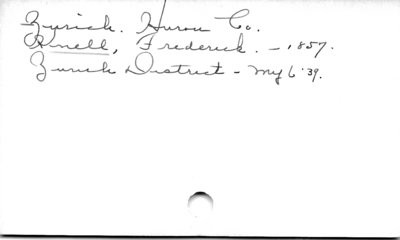 Zurich. Huron Co.
Knell, Frederick. - 1857.
Zurich District - My 6 '39.